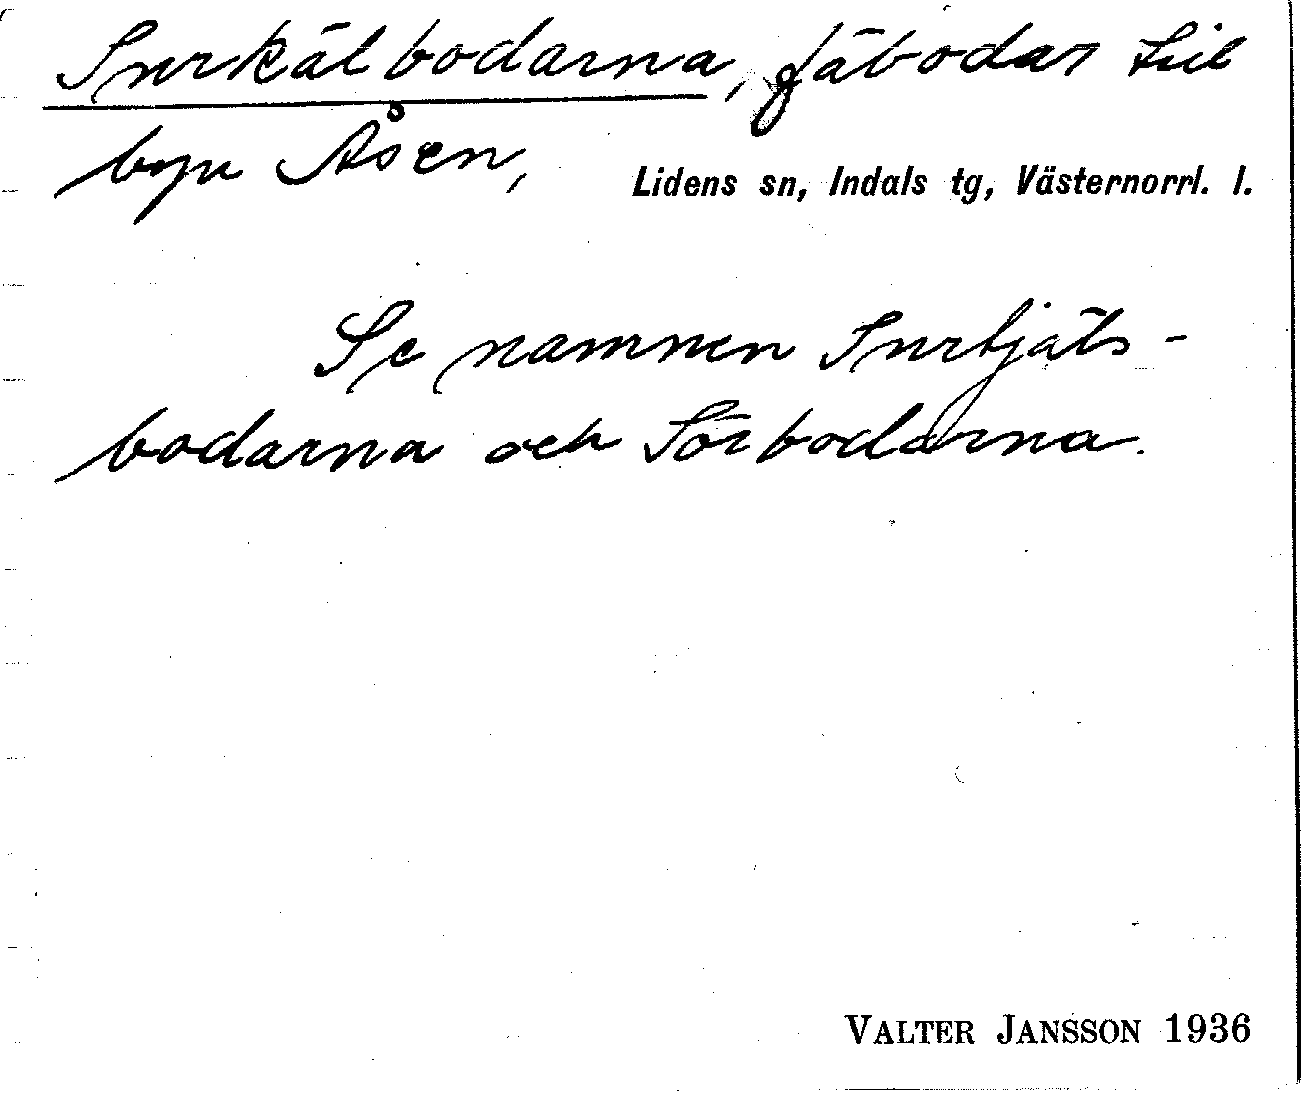 Surkälbodarna, fäbodar till
byn Åsen,
Lidens sn, Indals tg, Västernorrl. l.
Se namnen Surtjäls-
bodarna och Sörbodarna.
VALTER JANSSON 1936